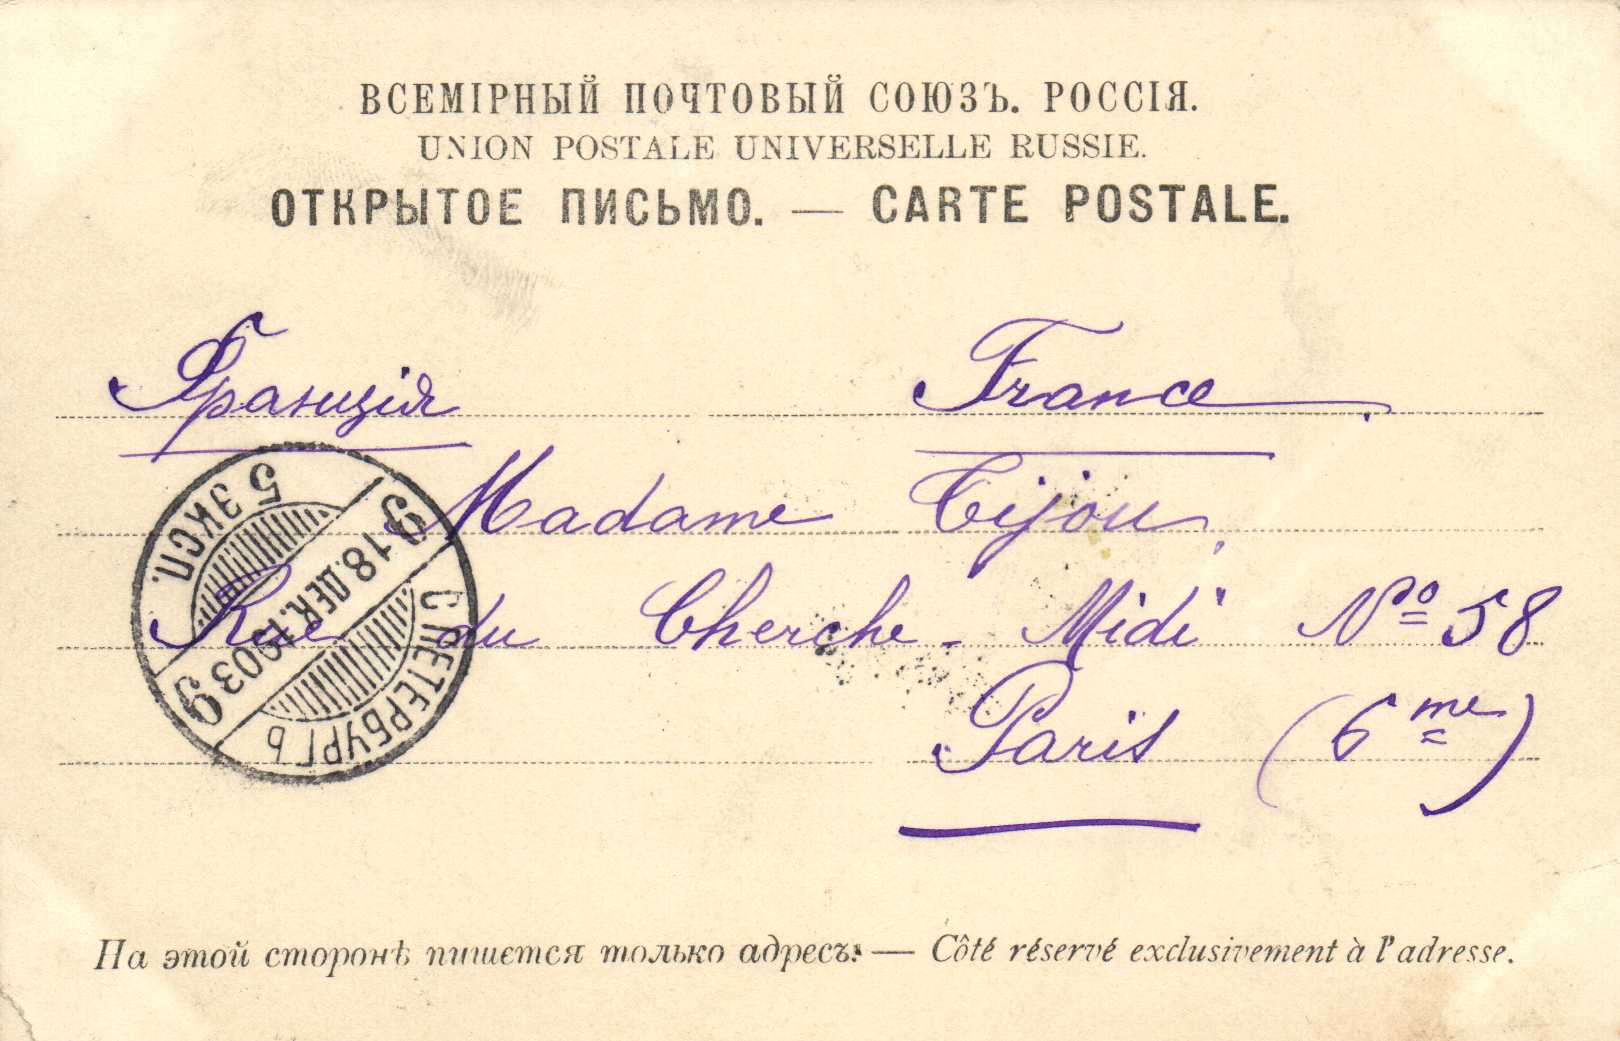 ВСЕМІРНЫЙ ПОЧТОВЫЙ СОЮЗЪ. РОССІЯ.
UNION POSTALE UNIVERSELLE RUSSIE.
ОТКРЫТОЕ ПИСЬМО. — CARTE POSTALE.
Франція France
Madame Tijou,
Rue du Cherche-Midi Nº 58
Paris (6me)
С.ПЕТЕРБУРГЪ
9 18.ДЕК.1903 9
5 ЭКСП.
На этой сторонѣ пишется только адресъ: — Côté réservé exclusivement à l'adresse.